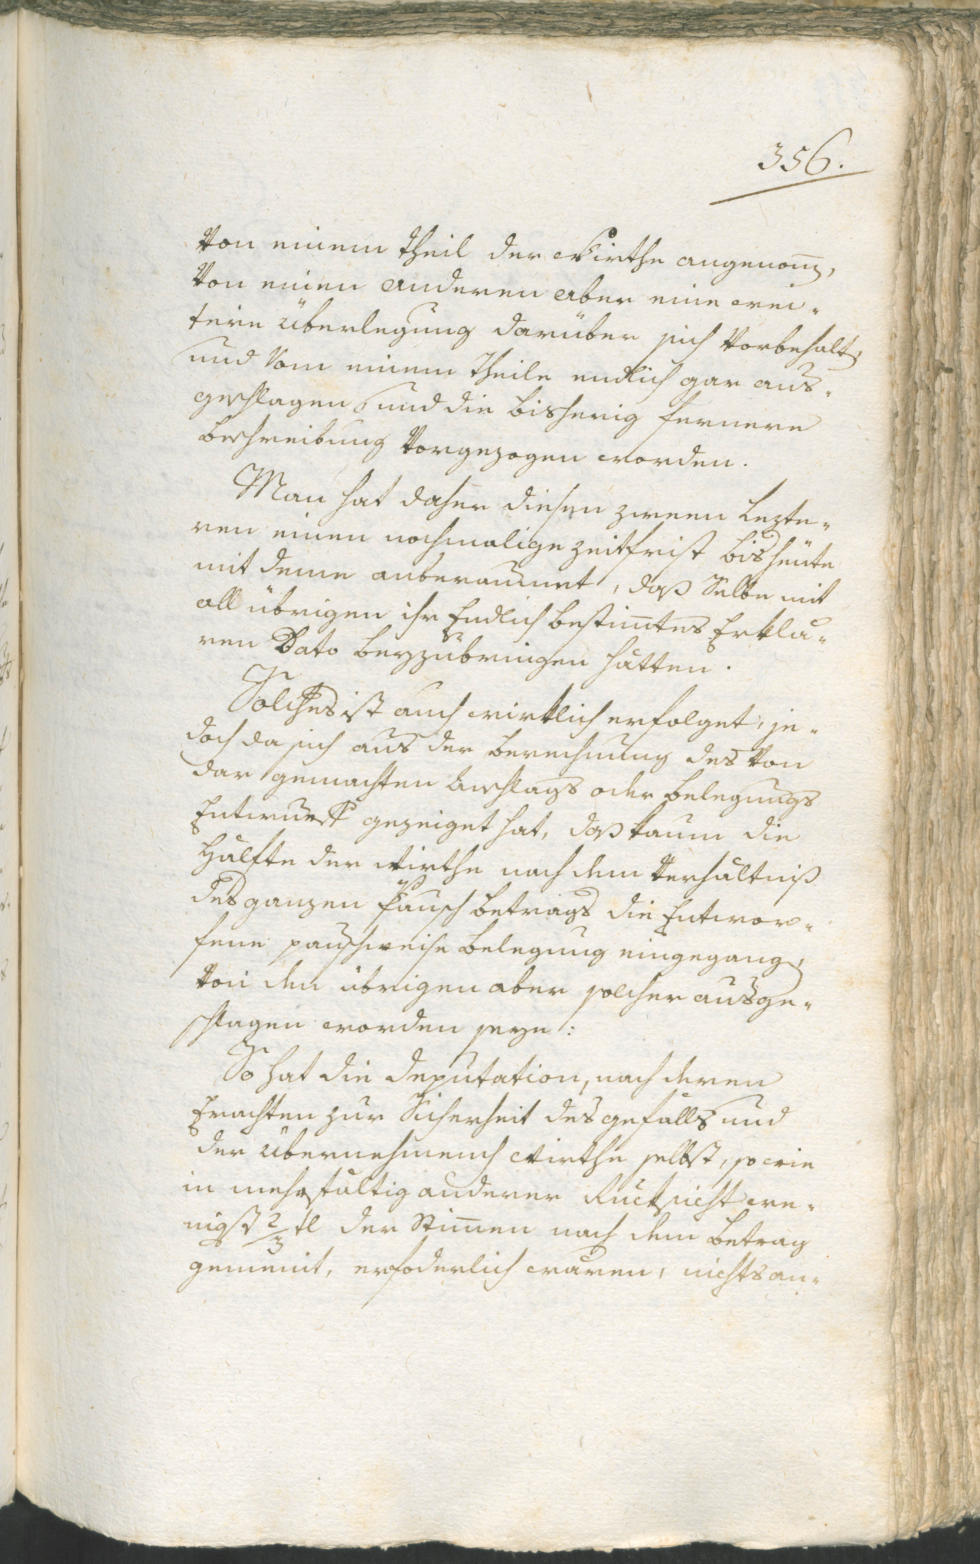 356.
Von einem Theil der Wirthe angenom̄en,
Von einen anderen aber eine wei-
tere Überlegung darüber sich Vorbehalt,
und Vom einem Theile endlich gar aus-
geschlagen, und die bisherig fernere
beschreibung Vorgezogen worden.
Man hat daher diesen zween Lezte-
ren einen nochmalige zeitfrist bis heute
mit deme anberaumet, daß Selbe mit
all übrigen ihr Endlich bestim̄tes Erklä-
ren Dato beyzubringen hätten.
Solches ist auch wirklich erfolget, je-
doch da sich aus der berechnung des Von
dar gemachten Anschlags oder belegungs
Entwurfs gezeiget hat, daß kaum die
Hälfte der Wirthe nach dem Verhältniß
des ganzen Pausch betrags die Entwor-
fene pauschweise belegung eingegang,
Von den übrigen aber solcher ausge-
schlagen worden seye:
So hat die Deputation, nach deren
Erachten zur Sicherheit des gefälls und
der übernehmend Wirthe selbst, so wie
in mehrfältig anderer Rucksicht we-
nigst 2/3 tl der Stim̄en nach dem betrag
gemeint, erfoderlich waren, nichts an-